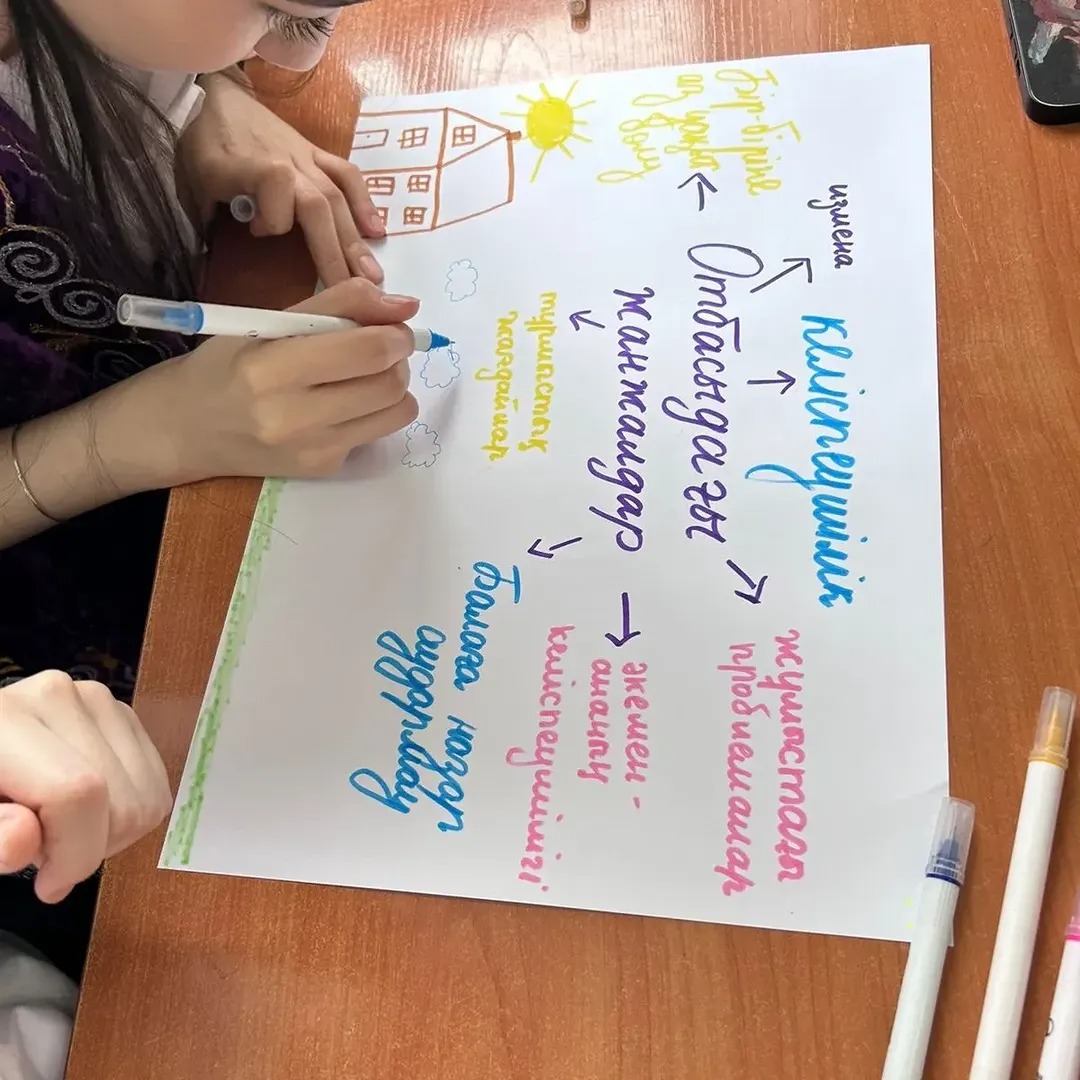 измена
Келіспеушілік
Бір-біріне
аз
бөлу
Отбасындағы
жанжалдар
жұмыстағы
проблемалар
әкемен-
ананың
келіспеушілігі
тұрмыстық
жағдайлар
Балаға назар
аудармау